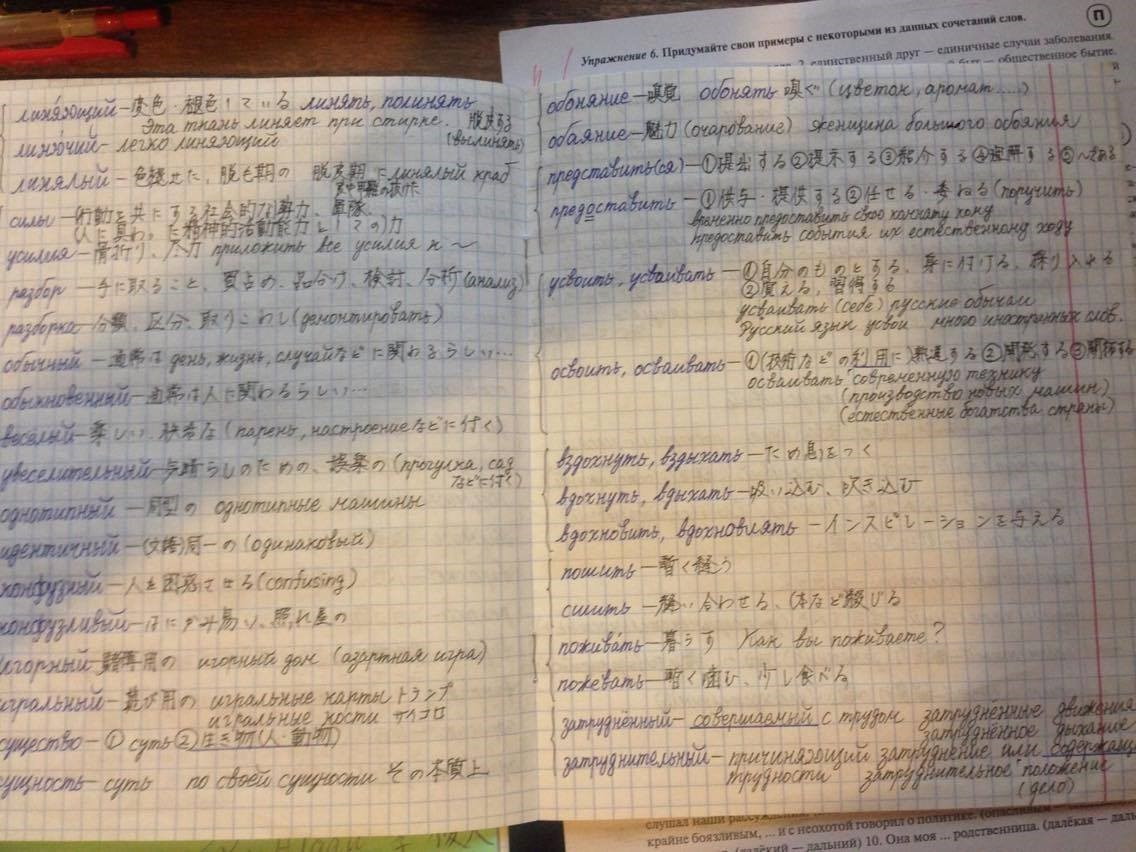 Упражнение 6. Придумайте свои примеры с некоторыми из данных сочетаний слов.
П
2. единственный друг — единичные случаи заболевания.
быт — общественное бытие.
линяющий —変色・褪色している линять, полинять
Эта ткань линяет при стирке. 脱皮する
линючий — легко линяющий (вылинять)
линялый —色褪せた, 脱毛期の 脱皮期 линялый краб
силы — (行動を共にする社会的な)勢力、軍隊、
(人に具わった精神的活動能力としての)力
усилия — 骨折り、尽力 приложить все усилия к ~
разбор — 手に取ること、買占め、品分け、検討、分析 (анализ)
разборка — 分類、区分、取りこわし (демонтировать)
обычный — 通常は день, жизнь, случайなどに関わるらしい…
обыкновенный — 通常は人に関わるらしい…
весёлый — 楽しい、快活な (парень, настроениеなどに付く)
увеселительный — 気晴らしのための、娯楽の (прогулка, сад
などに付く)
однотипный — 同型の однотипные машины
идентичный — (文語)同一の (одинаковый)
конфузный — 人を困惑させる (confusing)
конфузливый — はにかみ易い、照れ屋の
игорный — 賭博用の игорный дом (азартная игра)
игральный — 遊び用の игральные карты トランプ
игральные кости サイコロ
существо — ① суть ② 生き物(人・動物)
сущность — суть по своей сущности その本質上
обоняние — 嗅覚 обонять 嗅ぐ (цветок, аромат ....)
обаяние — 魅力 (очарование) женщина большого обаяния
представить(ся) — ①提出する ②提示する ③紹介する ④理解する ⑤~である
предоставить — ①供与・提供する ②任せる・委ねる (поручить)
временно предоставить свою комнату кому
предоставить события их естественному ходу
усвоить, усваивать — ①自分のものとする、身に付ける、採り入れる
②覚える、習得する
усваивать (себе) русские обычаи
Русский язык усвои много иностранных слов.
освоить, осваивать — ①(技術などの利用に)熟達する ②開発する ③開拓する
осваивать современную технику
(производство новых машин)
(естественные богатства страны)
вздохнуть, вздыхать — ため息をつく
вдохнуть, вдыхать — 吸い込む、吹き込む
вдохновить, вдохновлять — インスピレーションを与える
пошить — 暫く縫う
сшить — 縫い合わせる、(本など)綴じる
поживать — 暮らす Как вы поживаете?
пожевать — 暫く噛む、少し食べる
затруднённый — совершаемый с трудом затруднённые движения
затруднённое дыхание
затруднительный — причиняющий затруднение или содержащ
трудности затруднительное положение
(дело)
слушал наши рассуждения,
крайне боязливым, ... и с неохотой говорил о политике. (опасливым
(далёкий — дальний) 10. Она моя ... родственница. (далёкая — даль